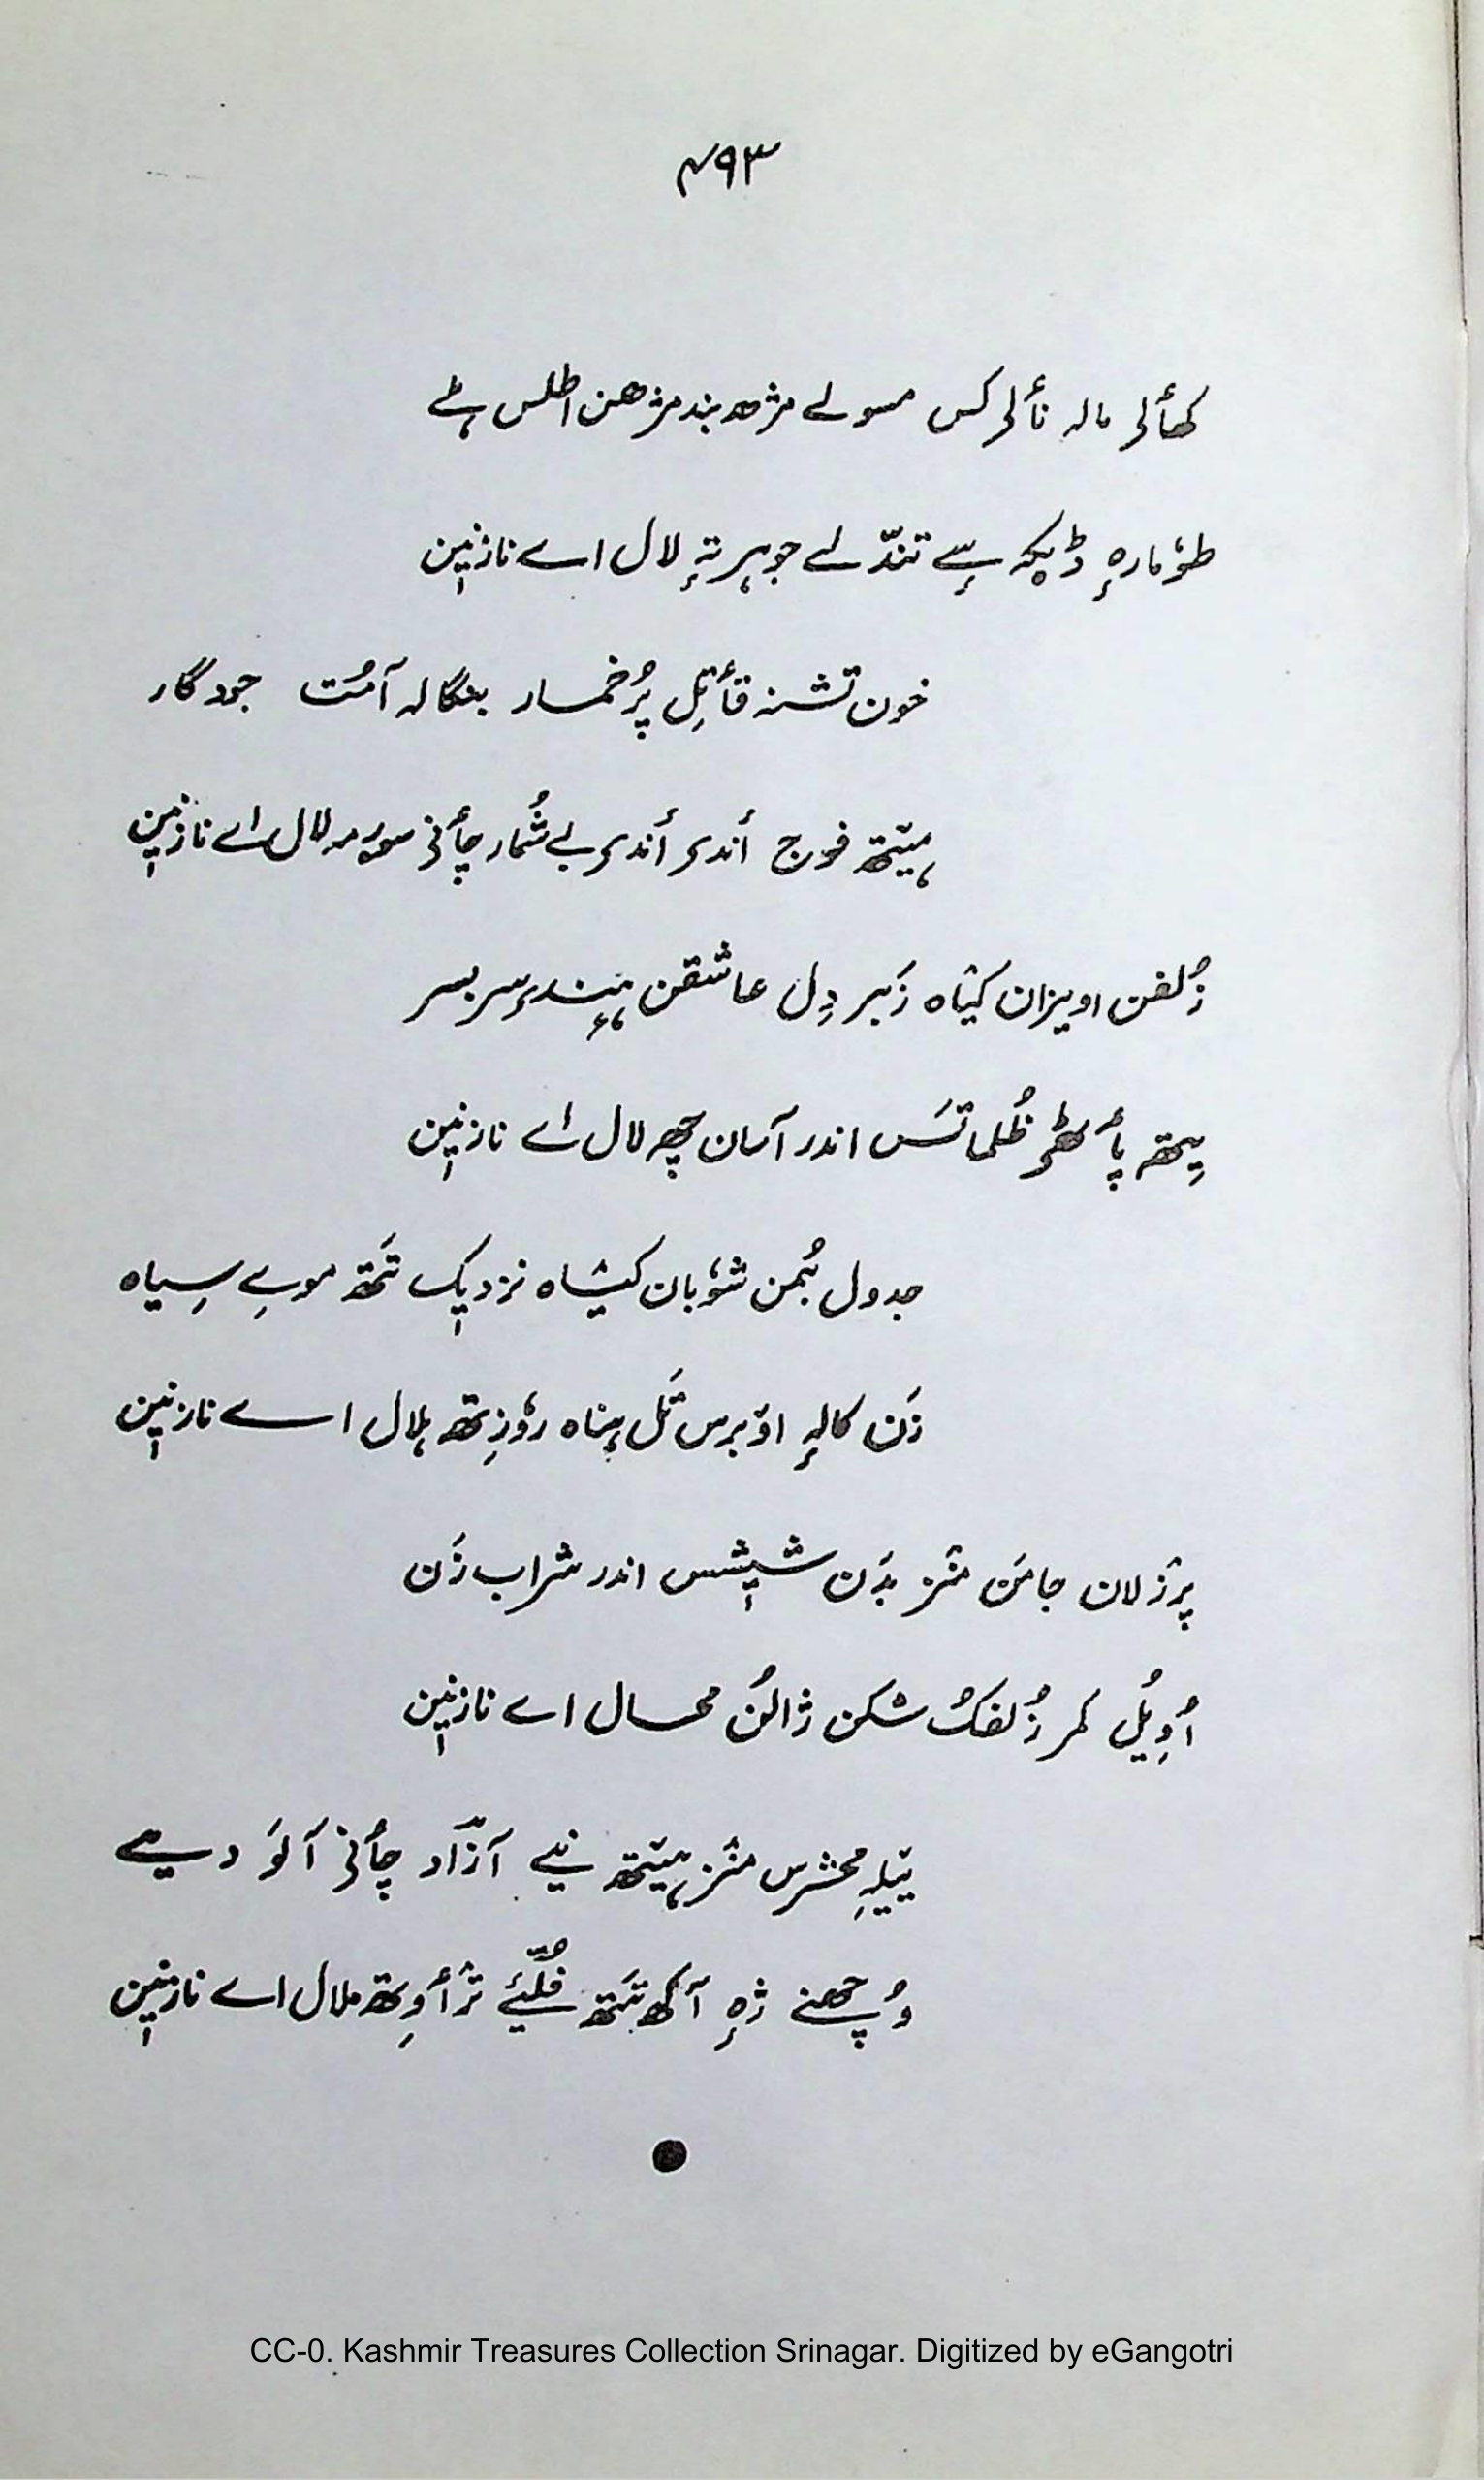 ۴۹۳
کھألۍ مالہ نألۍ کس مسولے مژھ بند مژھن اطلس ہٹے
طوٗمارٕہ ڈیکہ سٕے تندّلے جوہر تہٕ لال اے نازنیٖن
خون تشنہ قأتِل پُرخمار بنگالہ آمُت جودگار
ہیٚتھ فوج أندۍ أندۍ بے شُمار چأنۍ سورمہ لال اے نازنیٖن
زُلفن اویزان کیٛاہ زَبر دِل عاشقن ہٕنٛدۍ سربسر
یِتھہ پأٹھۍ ظُلماتَس اندر آسان چھہِ لال اے نازنیٖن
جدول بُمن شوٗبان کیٛاہ نزدیٖک تَتھ موے سِیاہ
زَن کالہٕ اوٚبرس تَل پناہ روٗزِتھ ہلال اے نازنیٖن
پرٛژلان جامَن منٛز بدَن شیٖشس اندر شراب زَن
اُویُل کمر زُلفکُ شکن ژالُن محال اے نازنیٖن
ییٚلہِ محشرس منٛز ہیٚتھ نیے آزاد چأنۍ آلَو دیے
وُچھنے ژہٕ أکھ تَتھ فُلیے ترٛأوِتھ ملال اے نازنیٖن
CC-0. Kashmir Treasures Collection Srinagar. Digitized by eGangotri